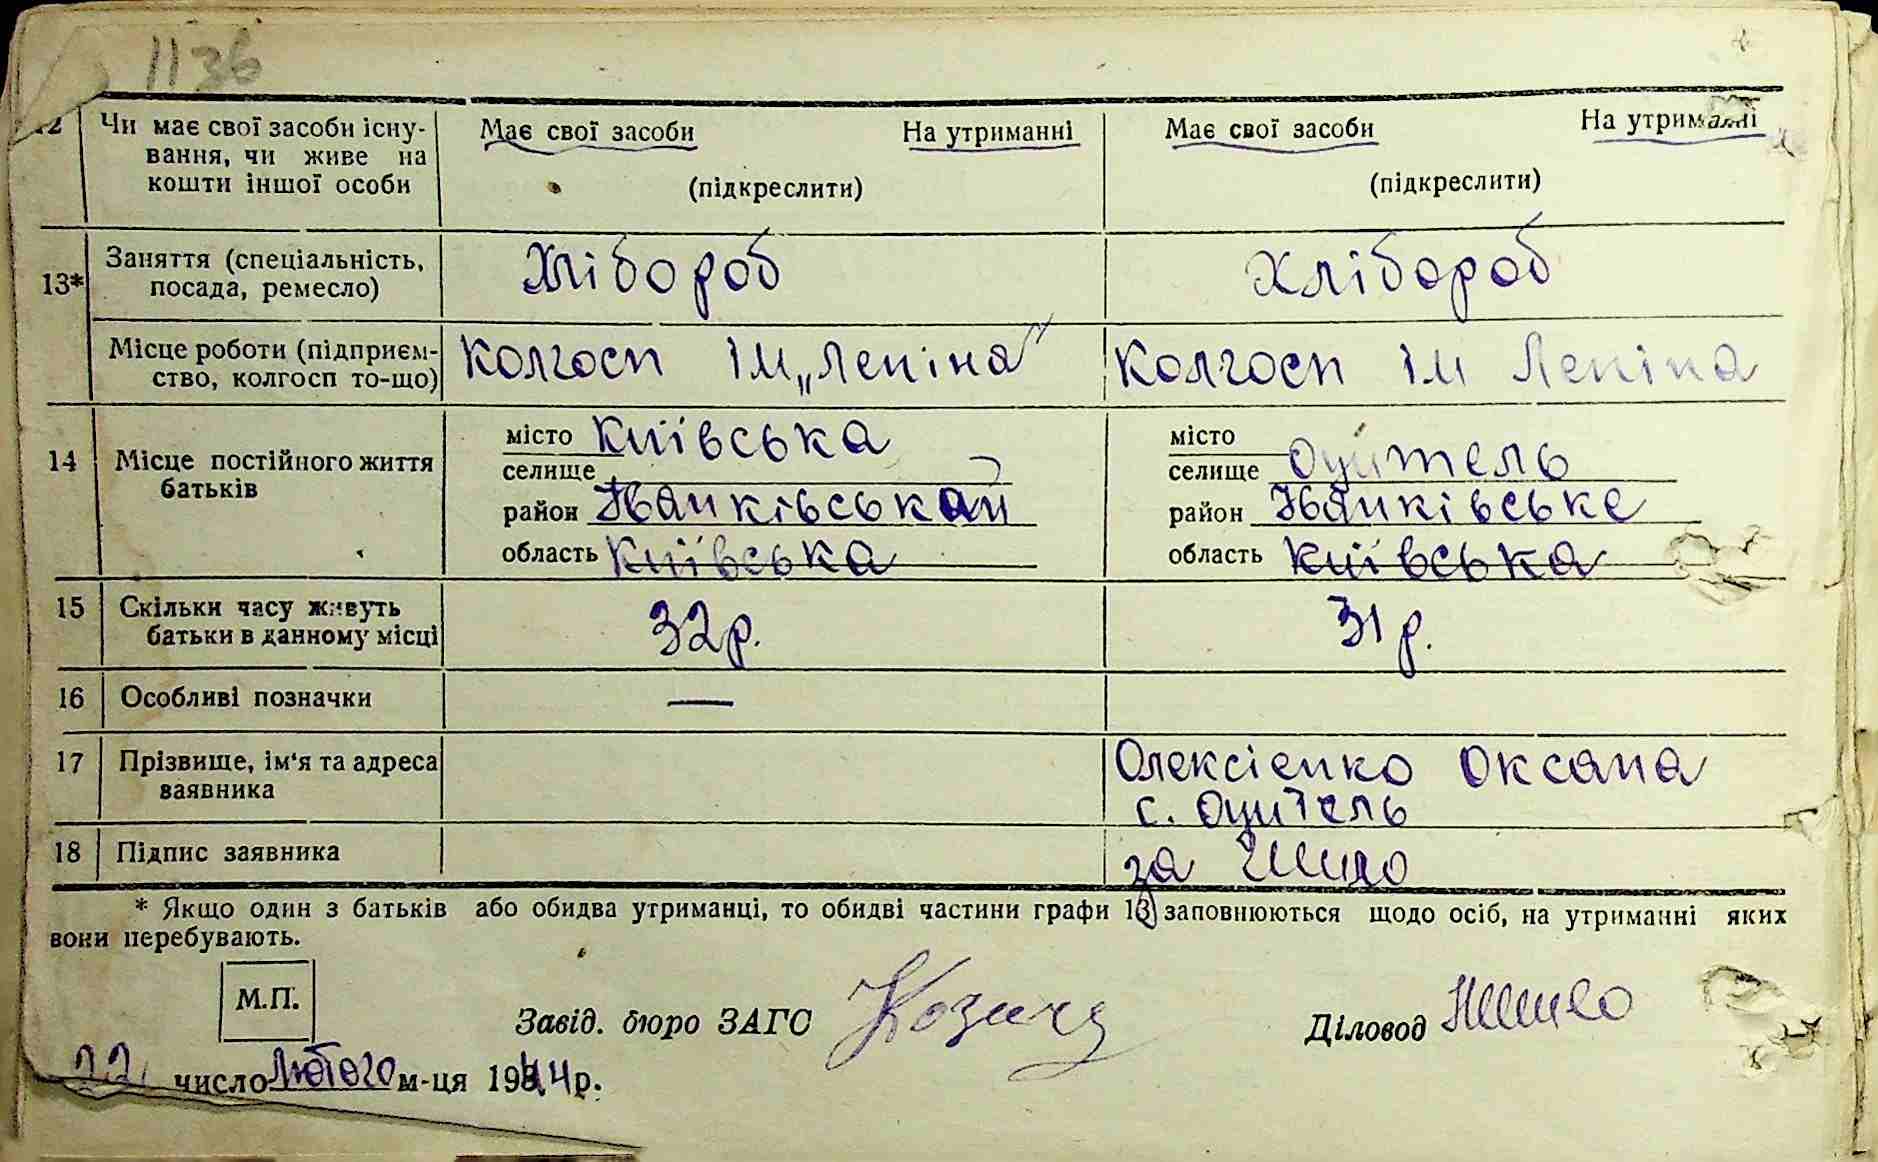 1136
12 Чи має свої засоби існу-
вання, чи живе на
кошти іншої особи
Має свої засоби На утриманні
(підкреслити)
Має свої засоби На утриманні
(підкреслити)
13* Заняття (спеціальність,
посада, ремесло)
Хлібороб
Хлібороб
Місце роботи (підприєм-
ство, колгосп то-що)
Колгосп ім „Леніна"
Колгосп ім Леніна
14 Місце постійного життя
батьків
місто Київська
селище
район Іванківський
область Київська
місто
селище Оцитель
район Іванківське
область Київська
15 Скільки часу живуть
батьки в данному місці
32 р.
31 р.
16 Особливі позначки
—
17 Прізвище, ім'я та адреса
заявника
Олексієнко Оксана
с. Оцитель
18 Підпис заявника
за Шило
* Якщо один з батьків або обидва утриманці, то обидві частини графи 13 заповнюються щодо осіб, на утриманні яких
вони перебувають.
М.П.
Завід. бюро ЗАГС
Діловод
22 число Лютого м-ця 1944 р.